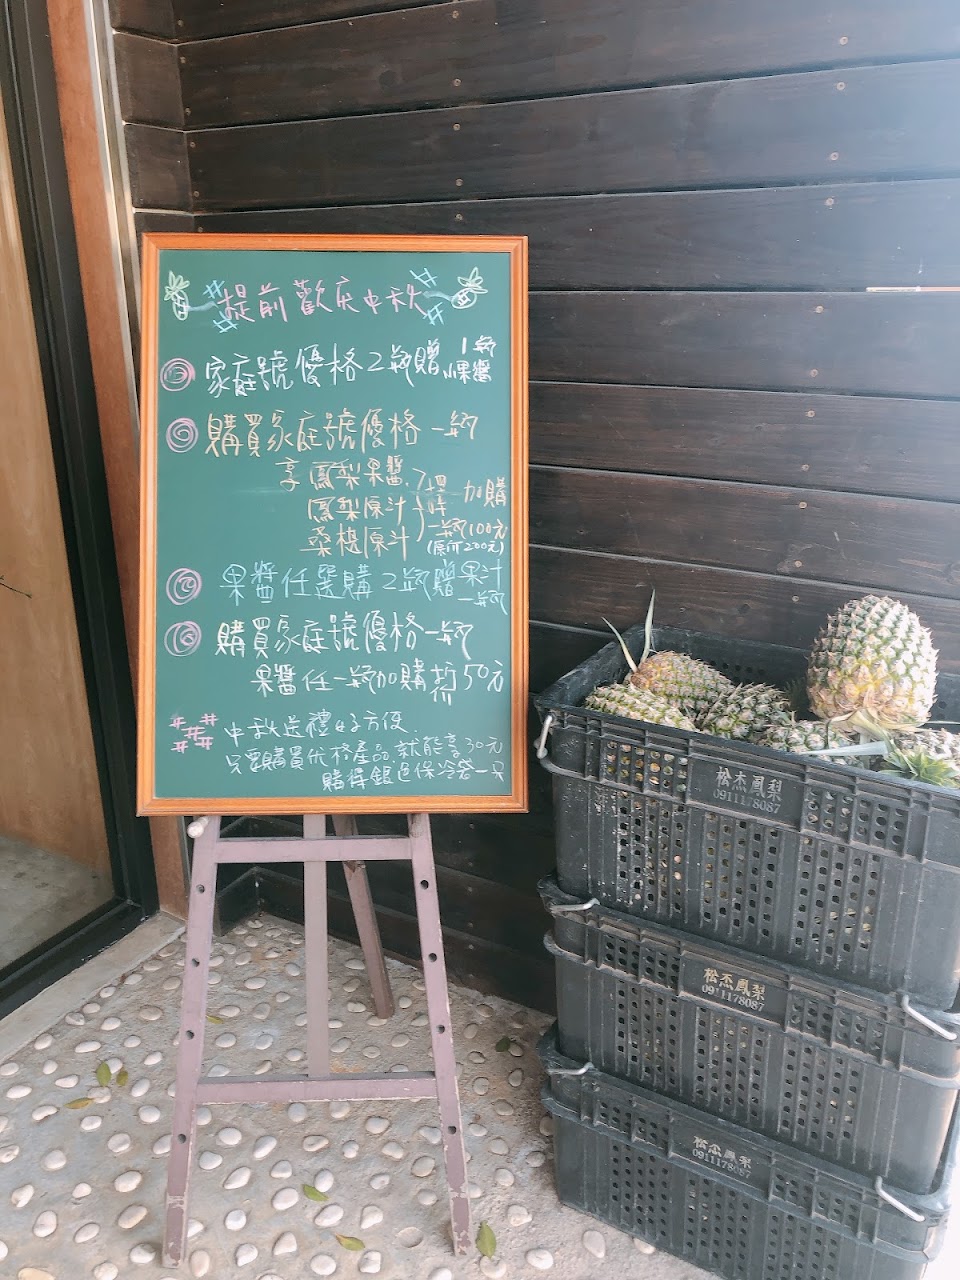 提前歡庆中秋
家庭號優格2瓶贈1瓶小果醬
購買家庭號優格一瓶
享鳳梨果醬
鳳梨原汁
桑椹原汁
加購
一瓶100元
(原价200元)
果醬任選購2瓶贈果汁一瓶
購買家庭號優格一瓶
果醬任一瓶加購折50元
中秋送禮好方便
只要購買优格產品就能享30元
購得銀色保冷袋一只
松杰鳳梨
0911178087
松杰鳳梨
0911178087
松杰鳳梨
0911178087